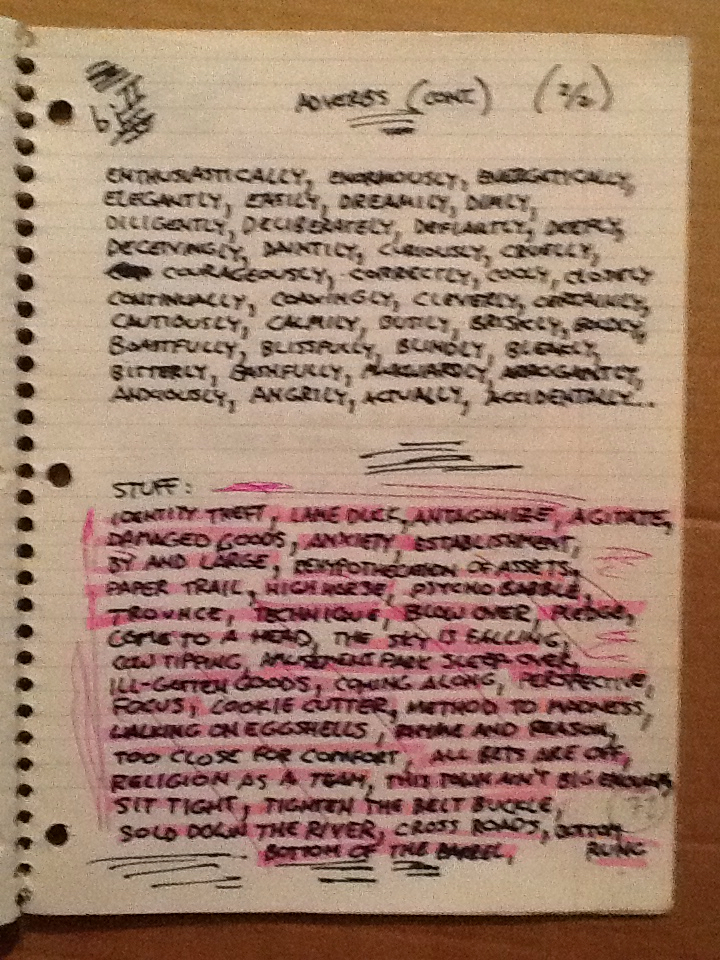 ADVERBS (CONT) (2/2)
ENTHUSIASTICALLY, ENORMOUSLY, ENERGETICALLY,
ELEGANTLY, EASILY, DREAMILY, DIMLY,
DILIGENTLY, DELIBERATELY, DEFIANTLY, DEEPLY,
DECEIVINGLY, DAINTILY, CURIOUSLY, CRUELLY,
COURAGEOUSLY, CORRECTLY, COOLY, CLOSELY
CONTINUALLY, CLEVERLY, CERTAINLY,
CAUTIOUSLY, CALMLY, BUSILY, BRISKLY, BOLDLY,
BOASTFULLY, BLISSFULLY, BLINDLY, BLEAKLY,
BITTERLY, BASHFULLY, AWKWARDLY, ARROGANTLY,
ANXIOUSLY, ANGRILY, ACTUALLY, ACCIDENTALLY...
STUFF:
IDENTITY THEFT, LAME DUCK, ANTAGONIZE, AGITATE,
DAMAGED GOODS, ANXIETY, ESTABLISHMENT,
BY AND LARGE, REHYPOTHECATION OF ASSETS,
PAPER TRAIL, HIGH HORSE, PSYCHO BABBLE,
TROUNCE, TECHNIQUE, BLOW OVER, PLEDGE,
COME TO A HEAD, THE SKY IS FALLING,
COW TIPPING, AMUSEMENT PARK SLEEP OVER,
ILL-GOTTEN GOODS, COMING ALONG, PERSPECTIVE,
FOCUS, COOKIE CUTTER, METHOD TO MADNESS,
WALKING ON EGGSHELLS, RHYME AND REASON,
TOO CLOSE FOR COMFORT, ALL BETS ARE OFF,
RELIGION AS A TEAM, THIS TOWN AIN'T BIG ENOUGH,
SIT TIGHT, TIGHTEN THE BELT BUCKLE,
SOLD DOWN THE RIVER, CROSS ROADS, BOTTOM
BOTTOM OF THE BARREL, RUNG